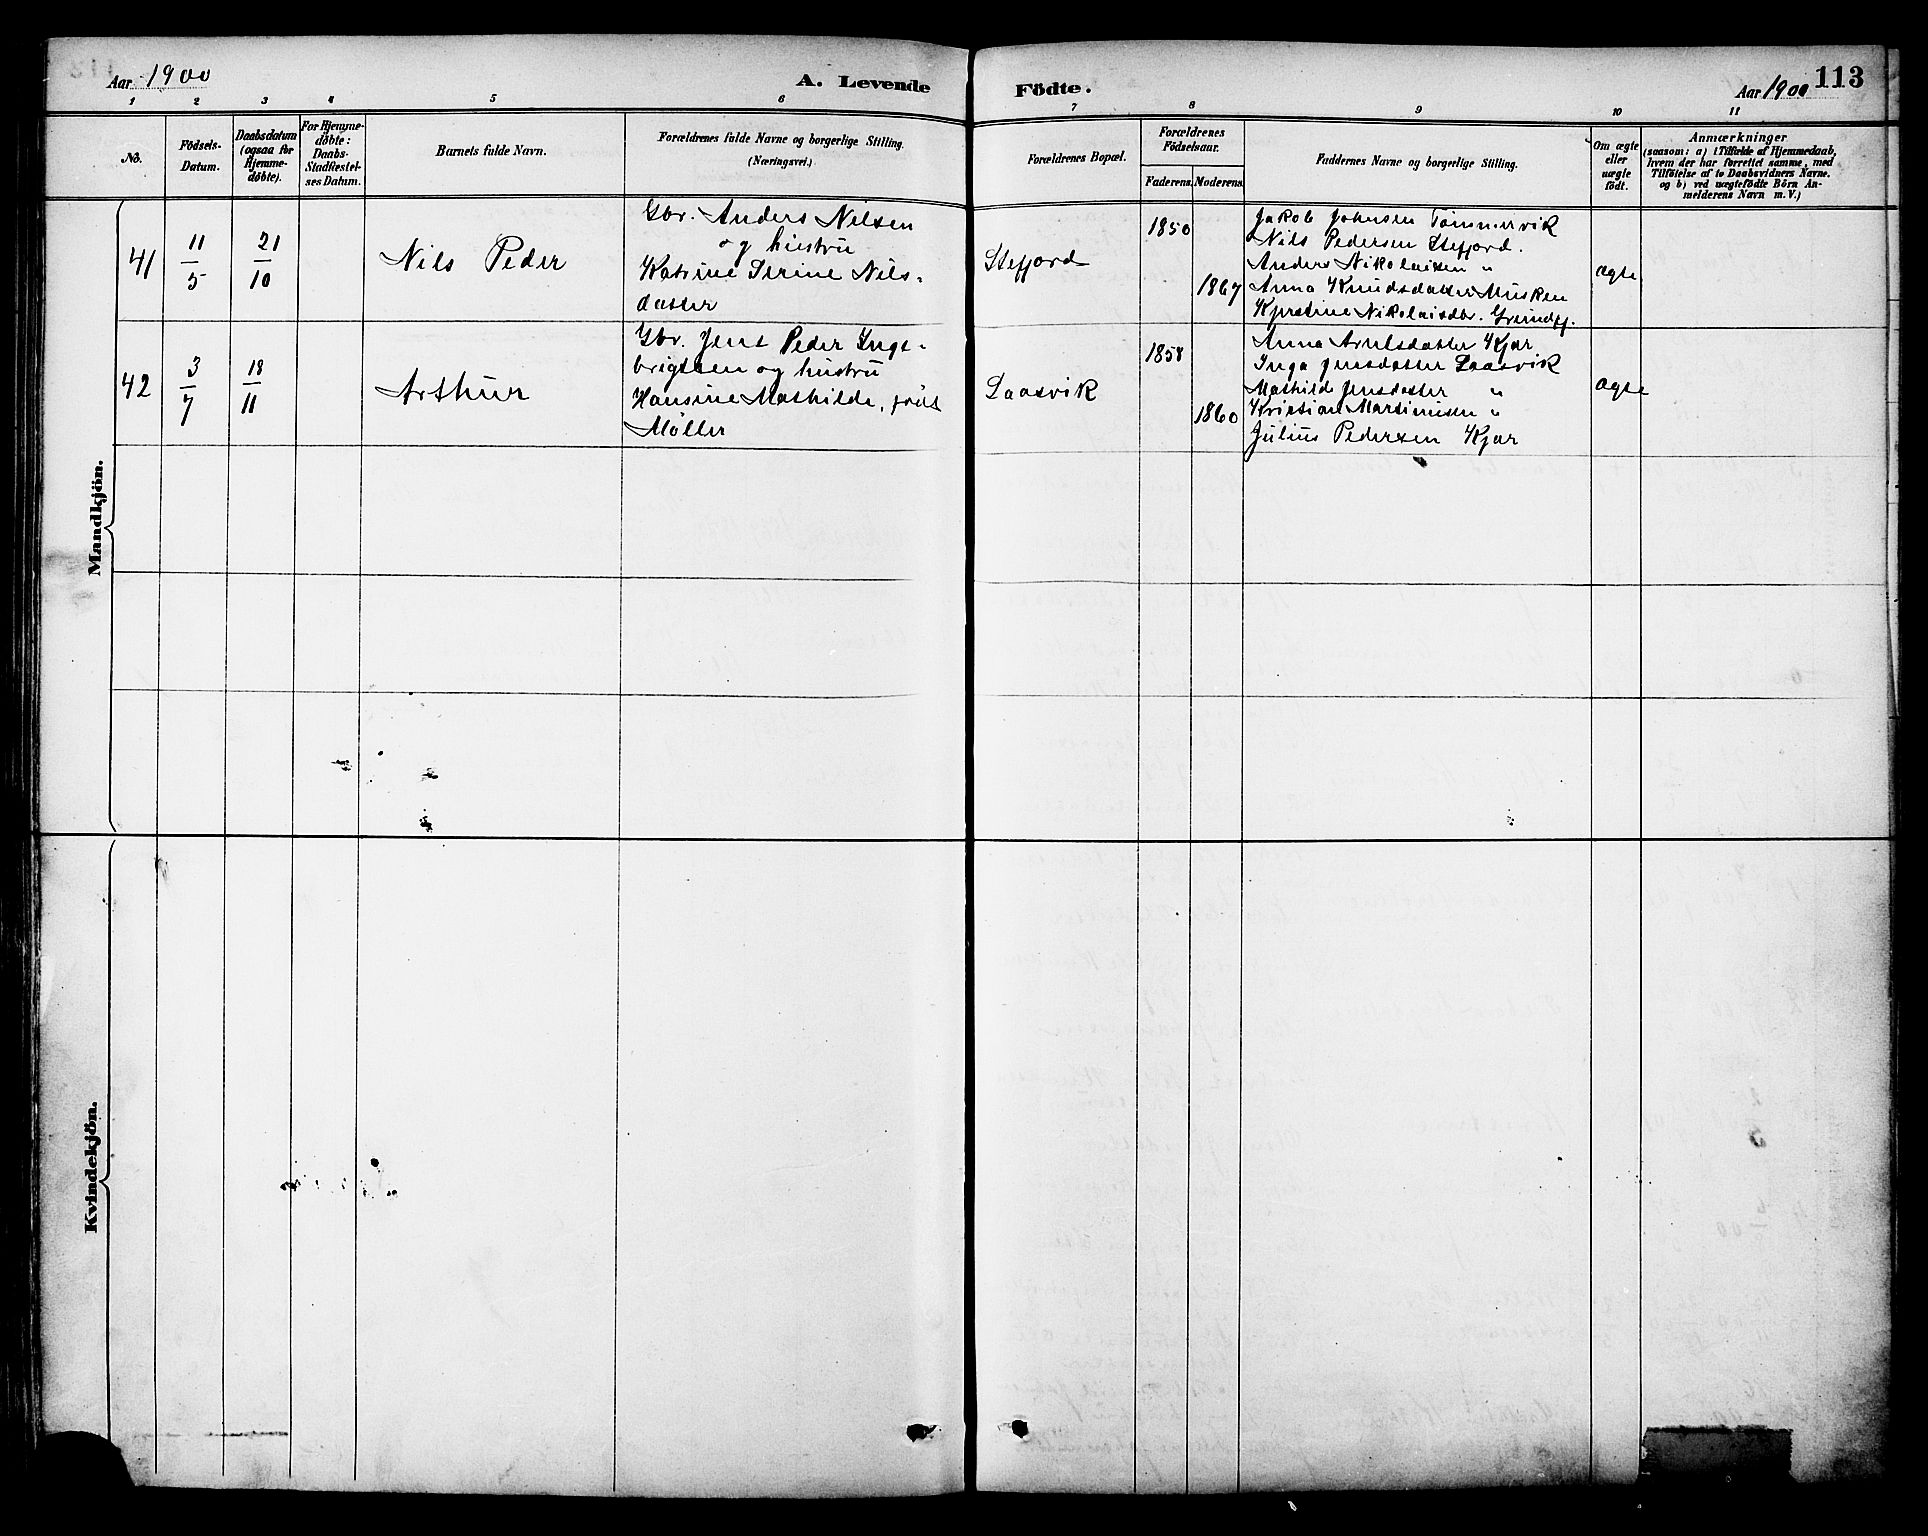 Aar 1900
A. Levende
Födte.
Aar 1900
113
1 2 3 4 5 6 7 8 9 10 11
No.
Födsels-
Datum.
Daabsdatum
(ogsaa for
Hjemme-
döbte).
For Hjemme-
döbte:
Daabs-
Stadfæstel-
ses Datum.
Barnets fulde Navn.
Forældrenes fulde Navne og borgerlige Stilling.
(Næringsvei.)
Forældrenes Bopæl.
Forældrenes
Födselsaar.
Faderens.
Moderens.
Faddernes Navne og borgerlige Stilling.
Om ægte
eller
uægte
födt.
Anmærkninger
(saasom: a) i Tilfælde af Hjemmedaab,
hvem der har forrettet samme, med
Tilföielse af to Daabsvidners Navne.
og b) ved uægtefödte Börn An-
melderens Navn m. V.)
Mandkjön.
41
11/5
21/10
Nils Peder
Gbr. Anders Nilsen
og hustru
Katrine Serine Nils-
datter
Stefjord
1850
1867
Jakob Johnsen Tömmervik
Nils Pedersen Stefjord.
Anders Nikolaisen "
Anna Knudsdatter Musken
Kjerstine Nikolaisdtr.
ægte
42
3/7
18/11
Arthur
Gbr. Jens Peder Inge-
brigtsen og hustru
Hansine Mathilde, født
Möller
Laasvik
1858
1860
Anna Arntsdatter Kjær
Inga Jensdatter Laasvik
Mathilde Jensdatter "
Kristian Martinusen "
Julius Pedersen Kjær
ægte
Kvindekjön.